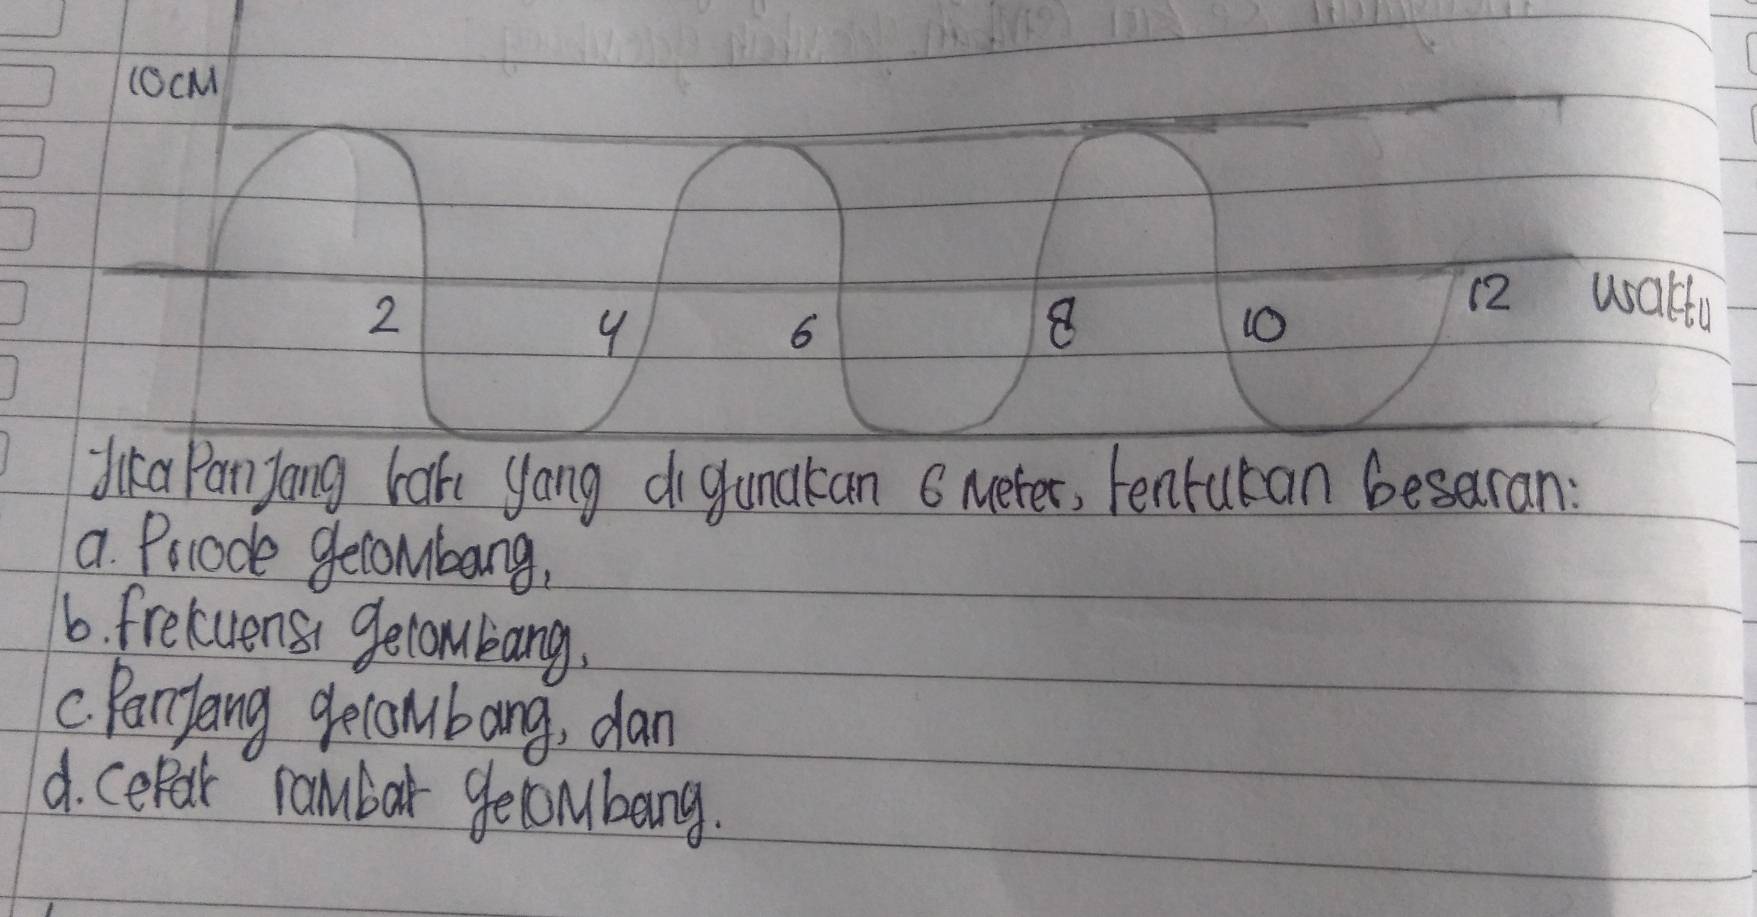 10 CM
2 4 6 8 10 12 waktu
Jika Panjang tali yang digunakan 6 Meter, tentukan besaran:
a. Priode gelombang,
b. frekuensi gelombang,
c. Panjang gelombang, dan
d. cepat rambat gelombang.